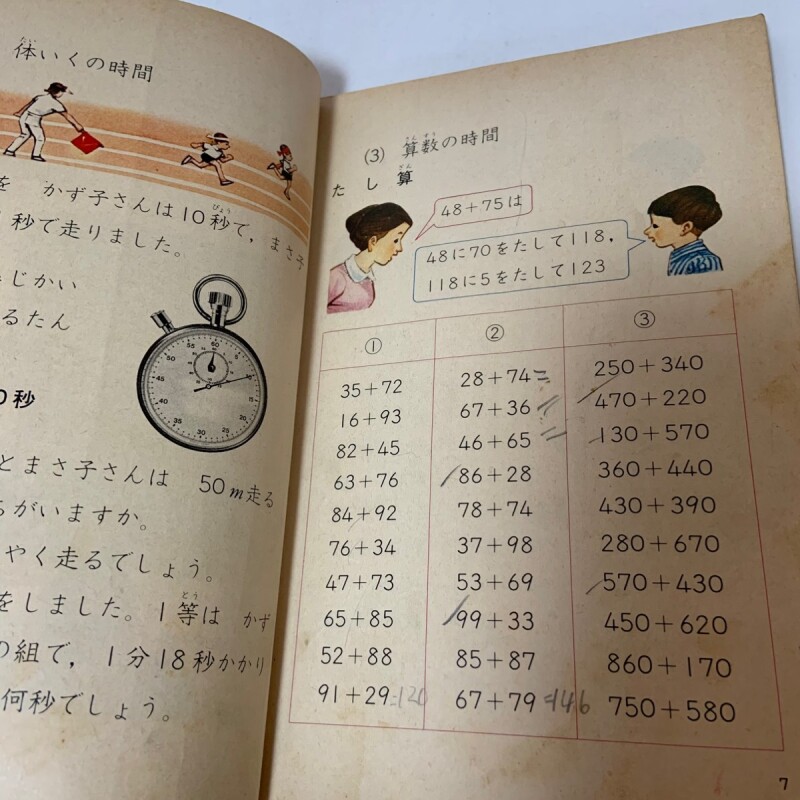 体いくの時間
たい
を かず子さんは10秒で，まさ子
びょう
秒で走りました。
じかい
るたん
0秒
とまさ子さんは 50m走る
がいますか。
やく走るでしょう。
をしました。1等は かず
とう
の組で，1分18秒かかり
何秒でしょう。
60
5
10
15
20
25
30
35
40
45
50
55
(3) 算数の時間
さん すう
たし算
ざん
48+75は
48に70をたして118，
118に5をたして123
① ② ③
35+72 28+74= 250+340
16+93 67+36 470+220
82+45 46+65= 130+570
63+76 86+28 360+440
84+92 78+74 430+390
76+34 37+98 280+670
47+73 53+69 570+430
65+85 99+33 450+620
52+88 85+87 860+170
91+29=120 67+79=146 750+580
7